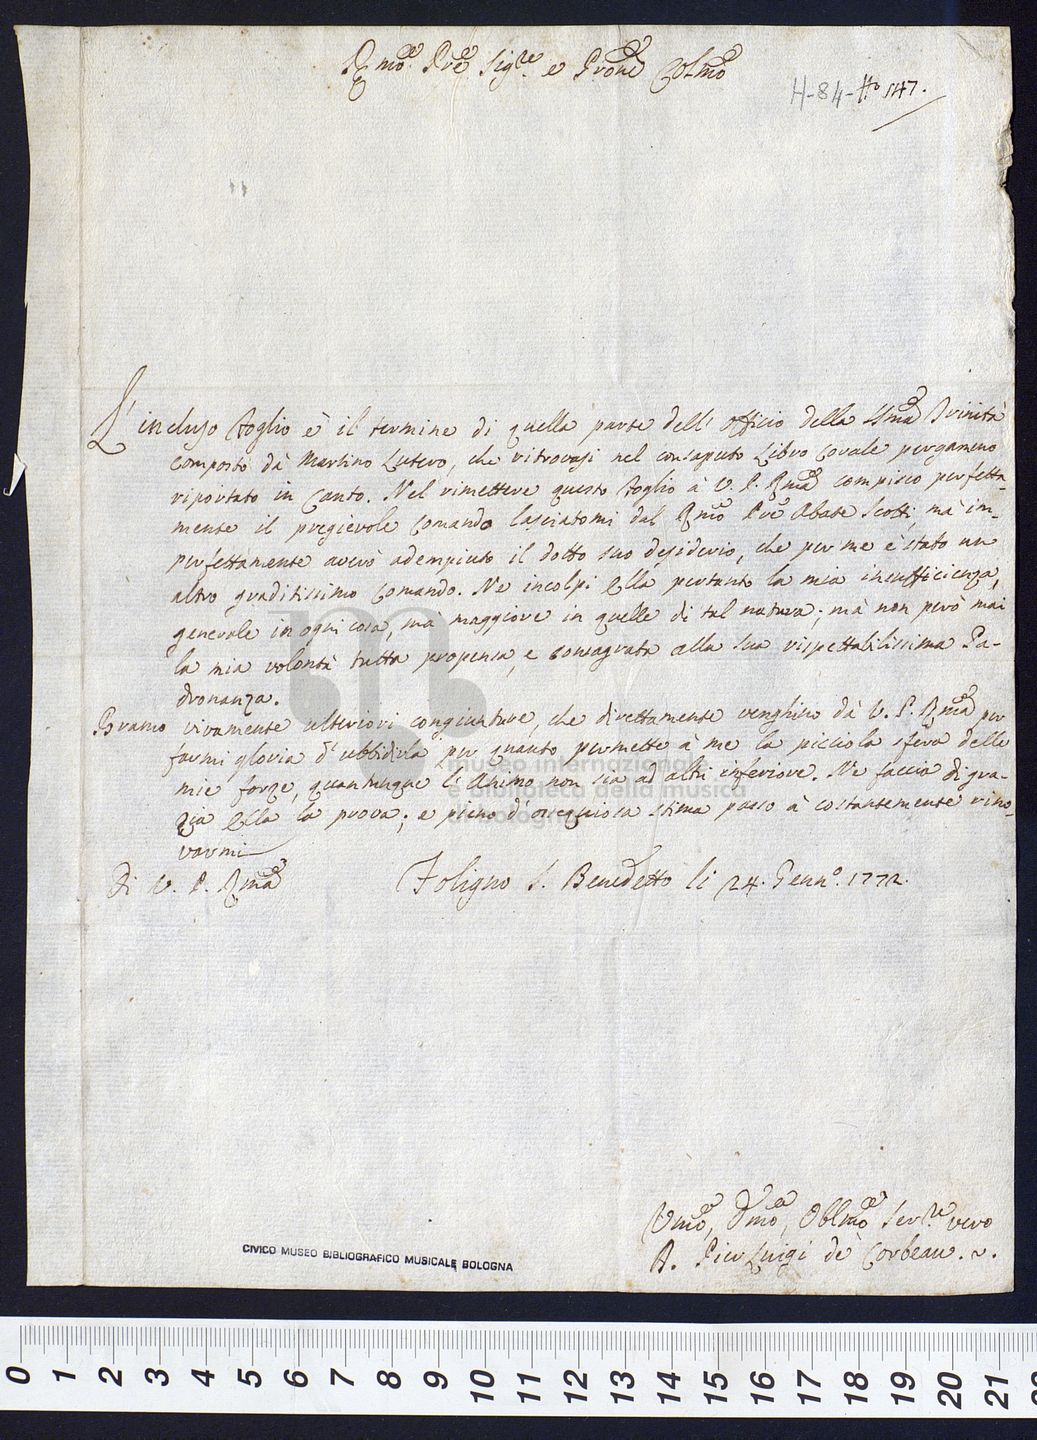 Rmo. Pre Sigre. e Prone Colmo
H-84-No 147.
L'incluso Foglio è il termine di quella parte dell' officio della SSma Trinità
composto dà Martino Lutero, che ritrovasi nel consaputo Libro Corale pergameno
riportato in Canto. Nel rimettere questo Foglio à V. P. Rma compisco perfetta-
mente il pregievole Comando lasciatomi dal Rmo Pre Abate Scotti, mà im-
perfettamente averò adempiuto il dotto suo desiderio, che per me è stato un
altro graditissimo Comando. Ne incolpi Ella pertanto la mia insufficienza,
generale in ogni cosa, mà maggiore in quelle di tal natura; mà non però mai
la mia volontà tutta propensa, e consagrata alla sua rispettabilissima Pa-
dronanza.
Bramo vivamente ulteriori congiunture, che direttamente venghino dà V. P. Rma per
farmi gloria d'ubbidirla per quanto permette à me la picciola sfera delle
mie forze, quantunque l'Animo non sia ad altri inferiore. Ne faccia di gra-
zia Ella la prova; e pieno d'ossequiosa stima passo à costantemente rino-
varmi
Di V. P. Rma
Foligno S. Benedetto li 24. Genno. 1772.
Umo, Dmo, Obblmo Servre vero
D. Pier Luigi de Corbeau.
museo internazionale
e biblioteca della musica
di bologna
CIVICO MUSEO BIBLIOGRAFICO MUSICALE BOLOGNA
0 1 2 3 4 5 6 7 8 9 10 11 12 13 14 15 16 17 18 19 20 21